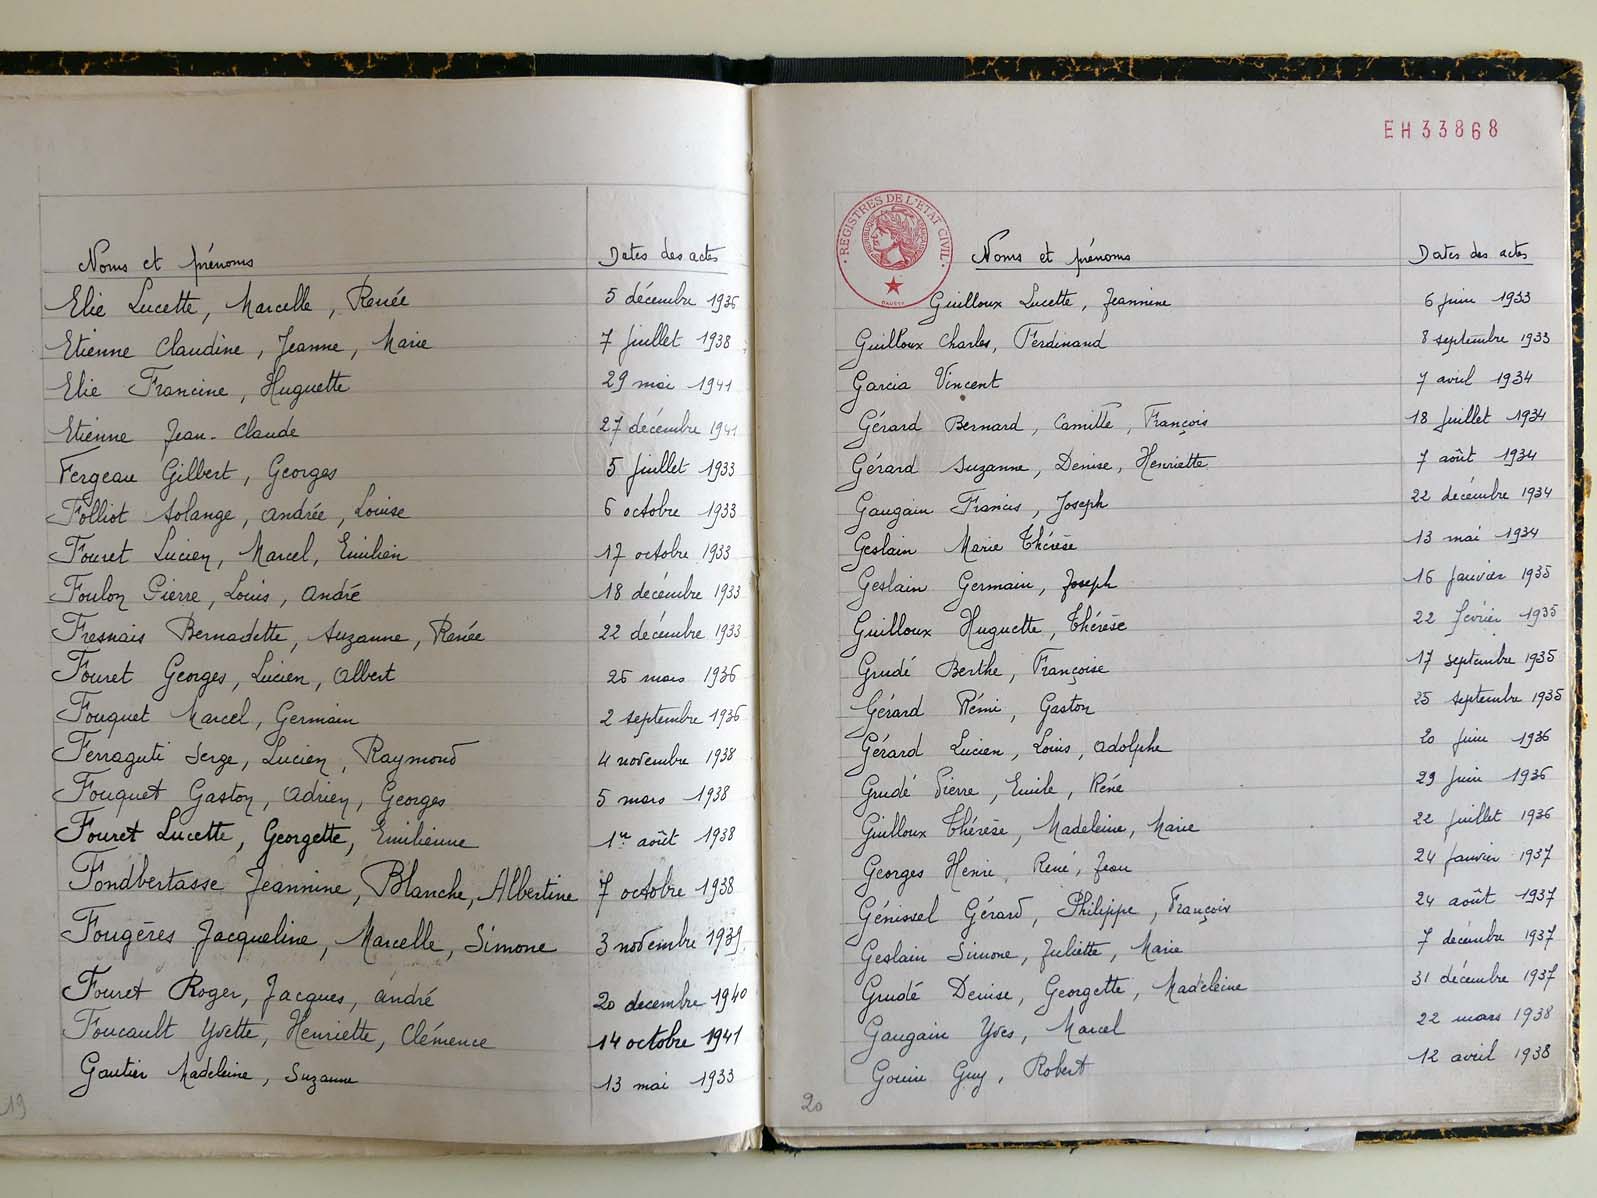 Noms et prénoms Dates des actes
Elie Lucette, Marcelle, Renée 5 décembre 1936
Etienne Claudine, Jeanne, Marie 7 juillet 1938
Elie Francine, Huguette 29 mai 1941
Etienne Jean-Claude 27 décembre 1941
Fergeau Gilbert, Georges 5 juillet 1933
Folliot Solange, Andrée, Louise 6 octobre 1933
Fouret Lucien, Marcel, Emilien 17 octobre 1933
Foulon Pierre, Louis, André 18 décembre 1933
Fresnais Bernadette, Suzanne, Renée 22 décembre 1933
Fouret Georges, Lucien, Albert 26 mars 1936
Fouquet Marcel, Germain 2 septembre 1936
Ferraguti Serge, Lucien, Raymond 4 novembre 1938
Fouquet Gaston, Adrien, Georges 5 mars 1938
Fouret Lucette, Georgette, Emilienne 1er août 1938
Fondbertasse Jeannine, Blanche, Albertine 7 octobre 1938
Fougères Jacqueline, Marcelle, Simone 3 novembre 1939
Fouret Roger, Jacques, André 20 decembre 1940
Foucault Yvette, Henriette, Clémence 14 octobre 1941
Gautier Madeleine, Suzanne 13 mai 1933
19
EH33868
REGISTRES DE L'ETAT CIVIL
Noms et prénoms Dates des actes
Guilloux Lucette, Jeannine 6 juin 1933
Guilloux Charles, Ferdinand 8 septembre 1933
Garcia Vincent 7 avril 1934
Gérard Bernard, Camille, François 18 juillet 1934
Gérard Suzanne, Denise, Henriette 7 août 1934
Gaugain Francis, Joseph 22 décembre 1934
Geslain Marie Thérèse 13 mai 1934
Geslain Germain, Joseph 16 janvier 1935
Guilloux Huguette, Thérèse 22 février 1935
Grudé Berthe, Françoise 17 septembre 1935
Gérard Rémi, Gaston 25 septembre 1935
Gérard Lucien, Louis, Adolphe 20 juin 1936
Grudé Pierre, Emile, Réné 29 juin 1936
Guilloux Thérèse, Madeleine, Marie 22 juillet 1936
Georges Henri, René, Jean 24 janvier 1937
Génissel Gérard, Philippe, François 24 août 1937
Geslain Simone, Juliette, Marie 7 décembre 1937
Grudé Denise, Georgette, Madeleine 31 décembre 1937
Gaugain Yves, Marcel 22 mars 1938
Gouin Guy, Robert 12 avril 1938
20